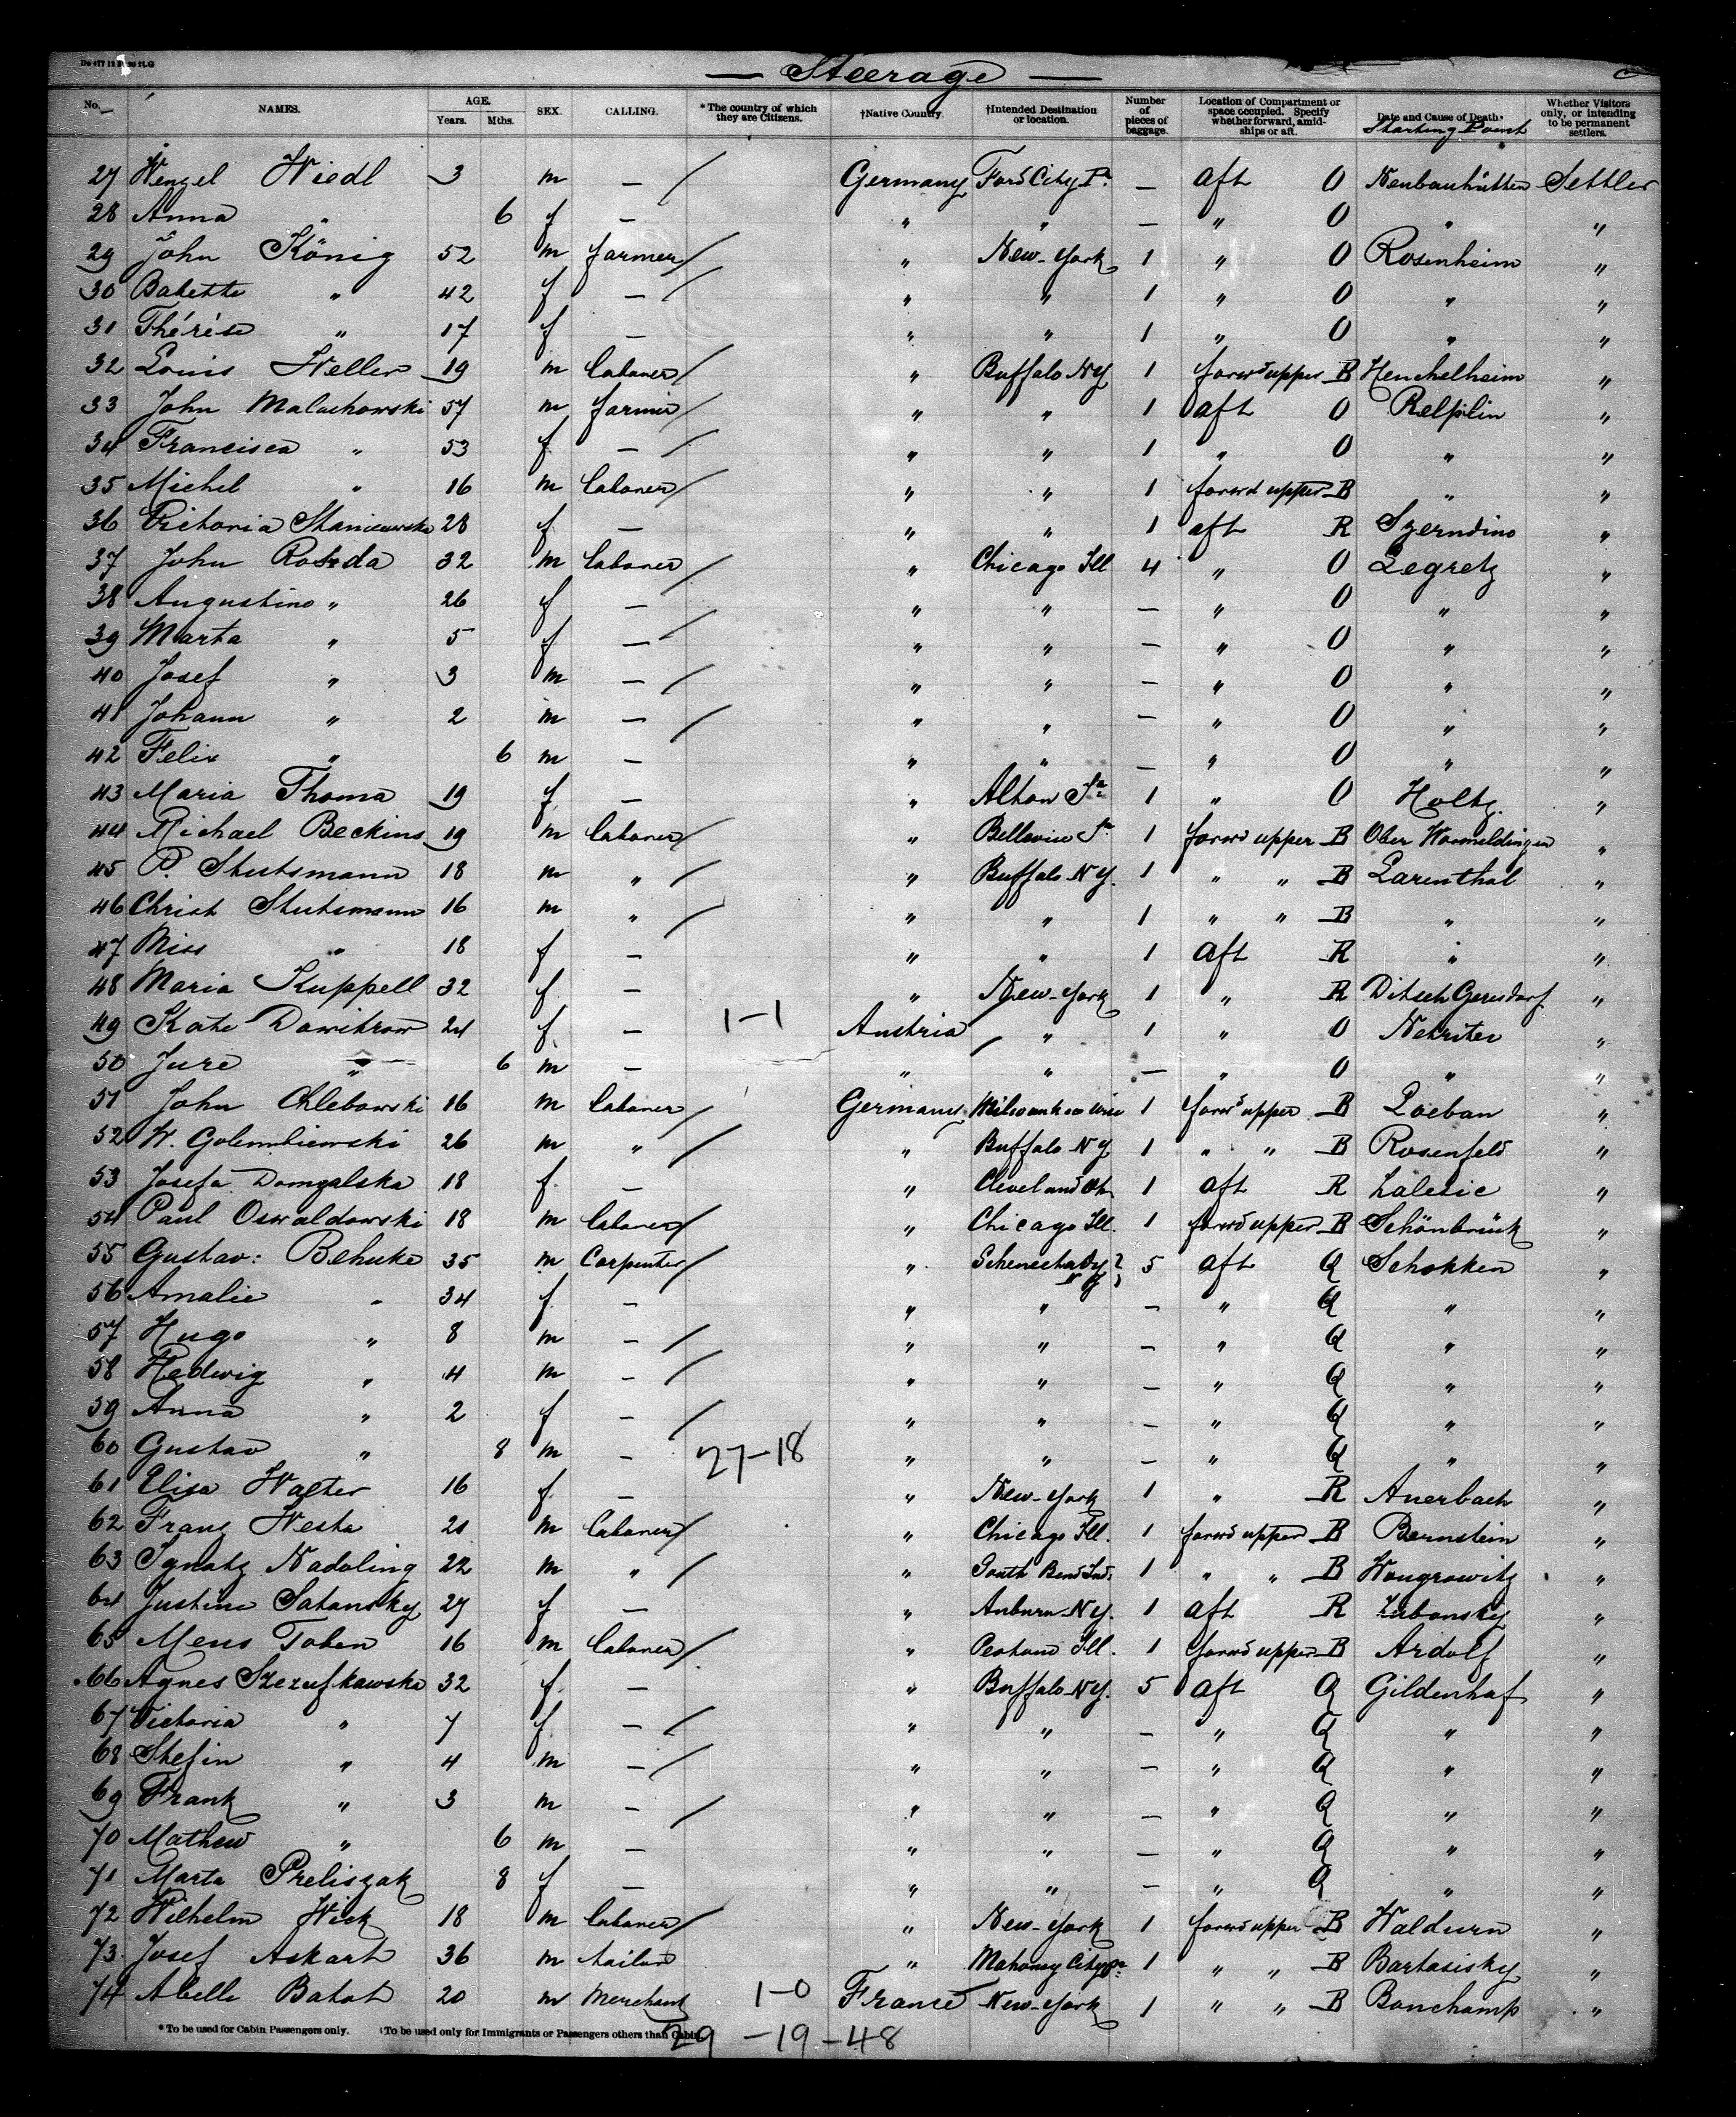 — Steerage —
No. NAMES. AGE. Years. Mths. SEX. CALLING. *The country of which they are Citizens. †Native Country †Intended Destination or location. Number of pieces of baggage. Location of Compartment or space occupied. Specify whether forward, amidships or aft. Date and Cause of Death. Starting Point Whether Visitors only, or intending to be permanent settlers.
27 Wenzel Wiedl 3 m — / Germany Ford City Pa — aft O Neubauhütten Settler
28 Anna " 6 f — " " — " O " "
29 John König 52 m farmer / " New-York 1 " O Rosenheim "
30 Babette " 42 f — / " " 1 " O " "
31 Thérèse " 17 f — " " 1 " O " "
32 Louis Heller 19 m laborer / " Buffalo NY 1 forwd upper B Henchelheim "
33 John Malachowski 57 m farmer / " " 1 aft O Relplin "
34 Francisca " 53 f — / " " 1 " O " "
35 Michel " 16 m laborer / " " 1 forwd upper B " "
36 Victoria Staniewska 28 f — " " 1 aft R Szerndino "
37 John Rosda 32 m laborer / " Chicago Ill 4 " O Legretz "
38 Augustine " 26 f — / " " — " O " "
39 Marta " 5 f — / " " — " O " "
40 Josef " 3 m — / " " — " O " "
41 Johann " 2 m — / " " — " O " "
42 Felix " 6 m — " " — " O " "
43 Maria Thoma 19 f — " Alton 1 " O Holtz "
44 Michael Beckins 19 m laborer / " Bellevue 1 forwd upper B Ober Wormeldingen "
45 P. Stutsmann 18 m " / " Buffalo NY. 1 " " B Larenthal "
46 Christ Stutsmann 16 m " / " " 1 " " B " "
47 Miss " 18 f — " " 1 aft R " "
48 Maria Kuppell 32 f — " New-York 1 " R Ditsch Geresdorf "
49 Kate Dawitrow 24 f — 1-1 Austria / " 1 " O Netriter "
50 Jure " 6 m — " " — " O " "
51 John Chlebowski 16 m laborer / Germany Milwaukee Wisc 1 forwd upper B Loebau "
52 W. Golembiewski 26 m " / " Buffalo NY 1 " " B Rosenfeld "
53 Josefa Domzalska 18 f — " Cleveland Oh 1 aft R Lalesic "
54 Paul Oswaldowski 18 m laborer / " Chicago Ill. 1 forwd upper B Schönbrück "
55 Gustav: Behnke 35 m Carpenter / " Schenectady NY 5 aft Q Schokken "
56 Amalie " 34 f — " " — " Q " "
57 Hugo " 8 m — / " " — " Q " "
58 Hedwig " 4 m — / " " — " Q " "
59 Anna " 2 f — / " " — " Q " "
60 Gustav " 8 m — 27-18 " " — " Q " "
61 Elisa Walter 16 f — " New-York 1 " R Auerbach "
62 Franz Westa 21 m laborer / " Chicago Ill. 1 forwd upper B Bernstein "
63 Ignatz Nadoling 22 m " / " South Bend Ind. 1 " " B Wongrowitz "
64 Justine Satansky 27 f — " Auburn NY. 1 aft R Lubansky "
65 Mens Token 16 m laborer / " Peotone Ill. 1 forwd upper B Ardolf "
66 Agnes Szezufkawska 32 f — " Buffalo NY. 5 aft Q Gildenhof "
67 Victoria " 7 f — / " " — " Q " "
68 Stefin " 4 m — / " " — " Q " "
69 Frank " 3 m — / " " — " Q " "
70 Mathew " 6 m — " " — " Q " "
71 Marta Preliszak 8 f — " " — " Q " "
72 Wilhelm Wick 18 m laborer / " New-York 1 forwd upper B Waldurn "
73 Josef Askart 36 m tailor " Mahony City Pa 1 " " B Bartasisky "
74 Abelle Batot 20 m Merchant 1-0 France New-York 1 " " B Bonchamp "
*To be used for Cabin Passengers only. †To be used only for Immigrants or Passengers others than Cabin. 29 -19-48